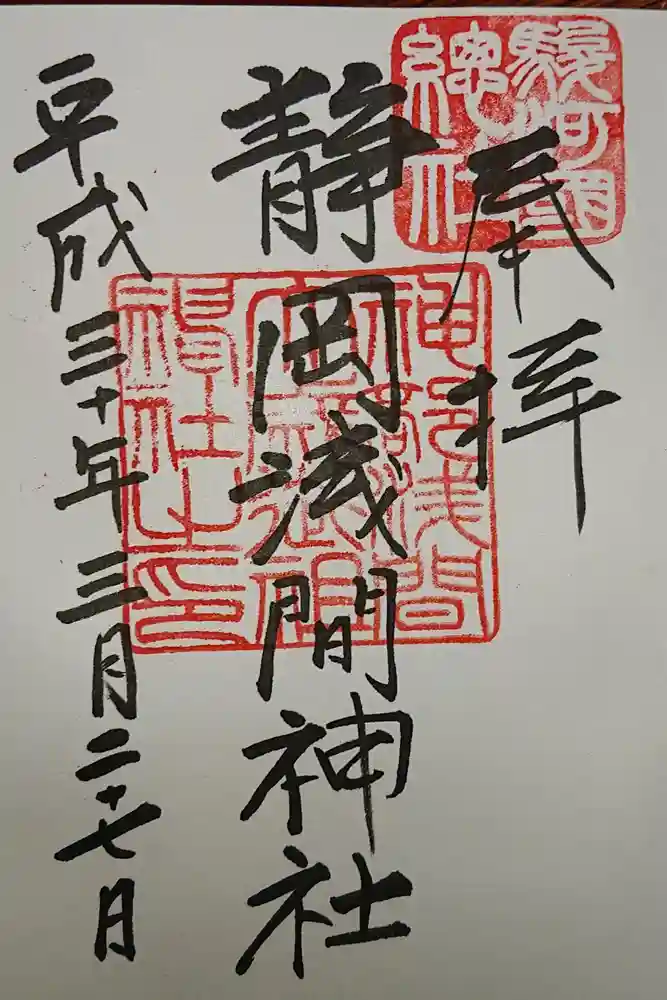 駿河國
總社
奉拝
静岡浅間神社
神部浅間
社之印
平成三十年三月二十七月